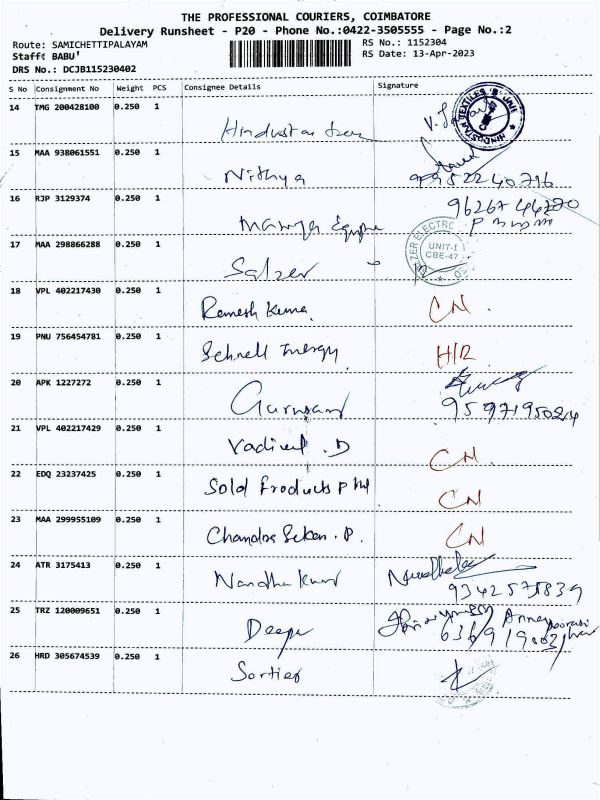 THE PROFESSIONAL COURIERS, COIMBATORE
Delivery Runsheet - P20 - Phone No.:0422-3505555 - Page No.:2
Route: SAMICHETTIPALAYAM RS No.: 1152304
Staff: BABU' RS Date: 13-Apr-2023
DRS No.: DCJB115230402
S No Consignment No Weight PCS Consignee Details Signature
14 TMG 200428100 0.250 1 Hindustan
HINDUSTAN TEXTILES
15 MAA 938061551 0.250 1 Nithya
16 RJP 3129374 0.250 1
17 MAA 298866288 0.250 1 Salzer
ZER ELECTRO UNIT-I CBE-47
18 VPL 402217430 0.250 1 Ramesh Kuma. CN.
19 PNU 756454781 0.250 1 Schnell Energy H/R
20 APK 1227272 0.250 1
21 VPL 402217429 0.250 1 Vadivel . D CN.
22 EDQ 23237425 0.250 1 Sold Products P CN
23 MAA 299955109 0.250 1 Chandra Sekan . P. CN
24 ATR 3175413 0.250 1 Nandha Kumar
25 TRZ 120009651 0.250 1 Deepa
26 HRD 305674539 0.250 1 Sortier